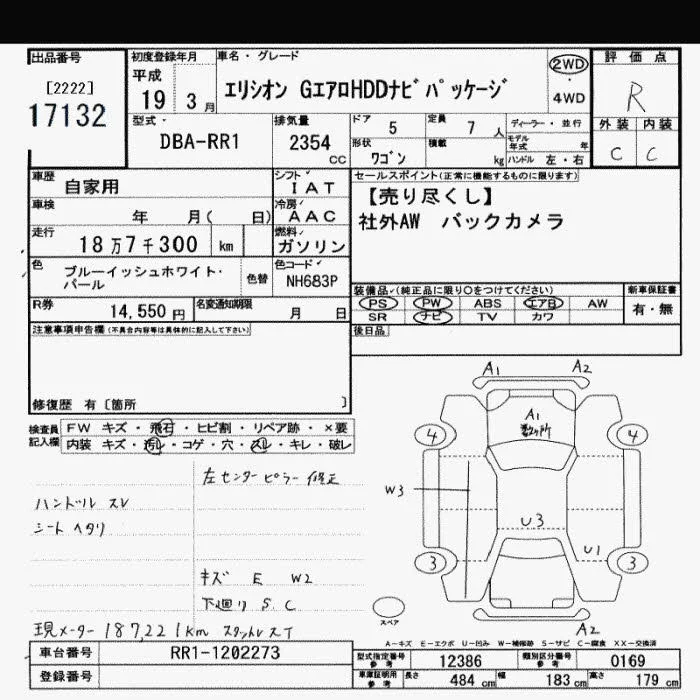 出品番号
[2222]
17132
初度登録年月
平成
19 3月
車名・グレード
エリシオン GエアロHDDナビパッケージ
2WD
・
4WD
評価点
R
外装 内装
C C
型式・
DBA-RR1
排気量
2354
CC
ドア 5
定員 7 人
形状 ワゴン
積載 kg
ディーラー・並行
モデル年式 年
ハンドル 左・右
車歴 自家用
車検 年 月( 日)
走行 18万7千300 km
色 ブルーイッシュホワイト・パール
色替
シフト IAT
冷房 AAC
燃料 ガソリン
色コード NH683P
R券 14,550円
名変通知期限 月 日
セールスポイント(正常に機能するものに限ります)
【売り尽くし】
社外AW バックカメラ
装備品(純正品に限り○をつけてください)
PS PW ABS エアB AW
SR ナビ TV カワ
新車保証書
有・無
後日品
注意事項申告欄(不具合内容等は具体的に記入して下さい)
修復歴 有〔箇所 〕
検査員記入欄
FW キズ・飛石・ヒビ割・リペア跡・×要
内装 キズ・汚レ・コゲ・穴・スレ・キレ・破レ
左センターピラー 修正
ハンドル スレ
シート ヘタリ
キズ E W2
下廻り S.C
現メーター 187,221km スタットレスT
A1 A2
A1
数ヶ所
4 4
W3
U3
U1
3 3
A2
スペア
A-キズ E-エクボ U-凹み W-補修跡 S-サビ C-腐食 XX-交換済
車台番号 RR1-1202273
登録番号
型式指定番号 参考 12386
類別区分番号 参考 0169
車庫証明用 参考 長さ 484 cm 幅 183 cm 高さ 179 cm